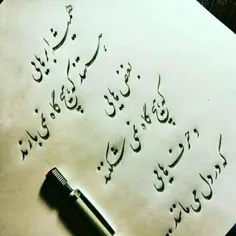 همیشه ابرهایی
هستند که هیچ گاه نمی بارند
بغض هایی
که هیچ گاه نمی شکنند
و حرف هایی
که در دل می مانند...